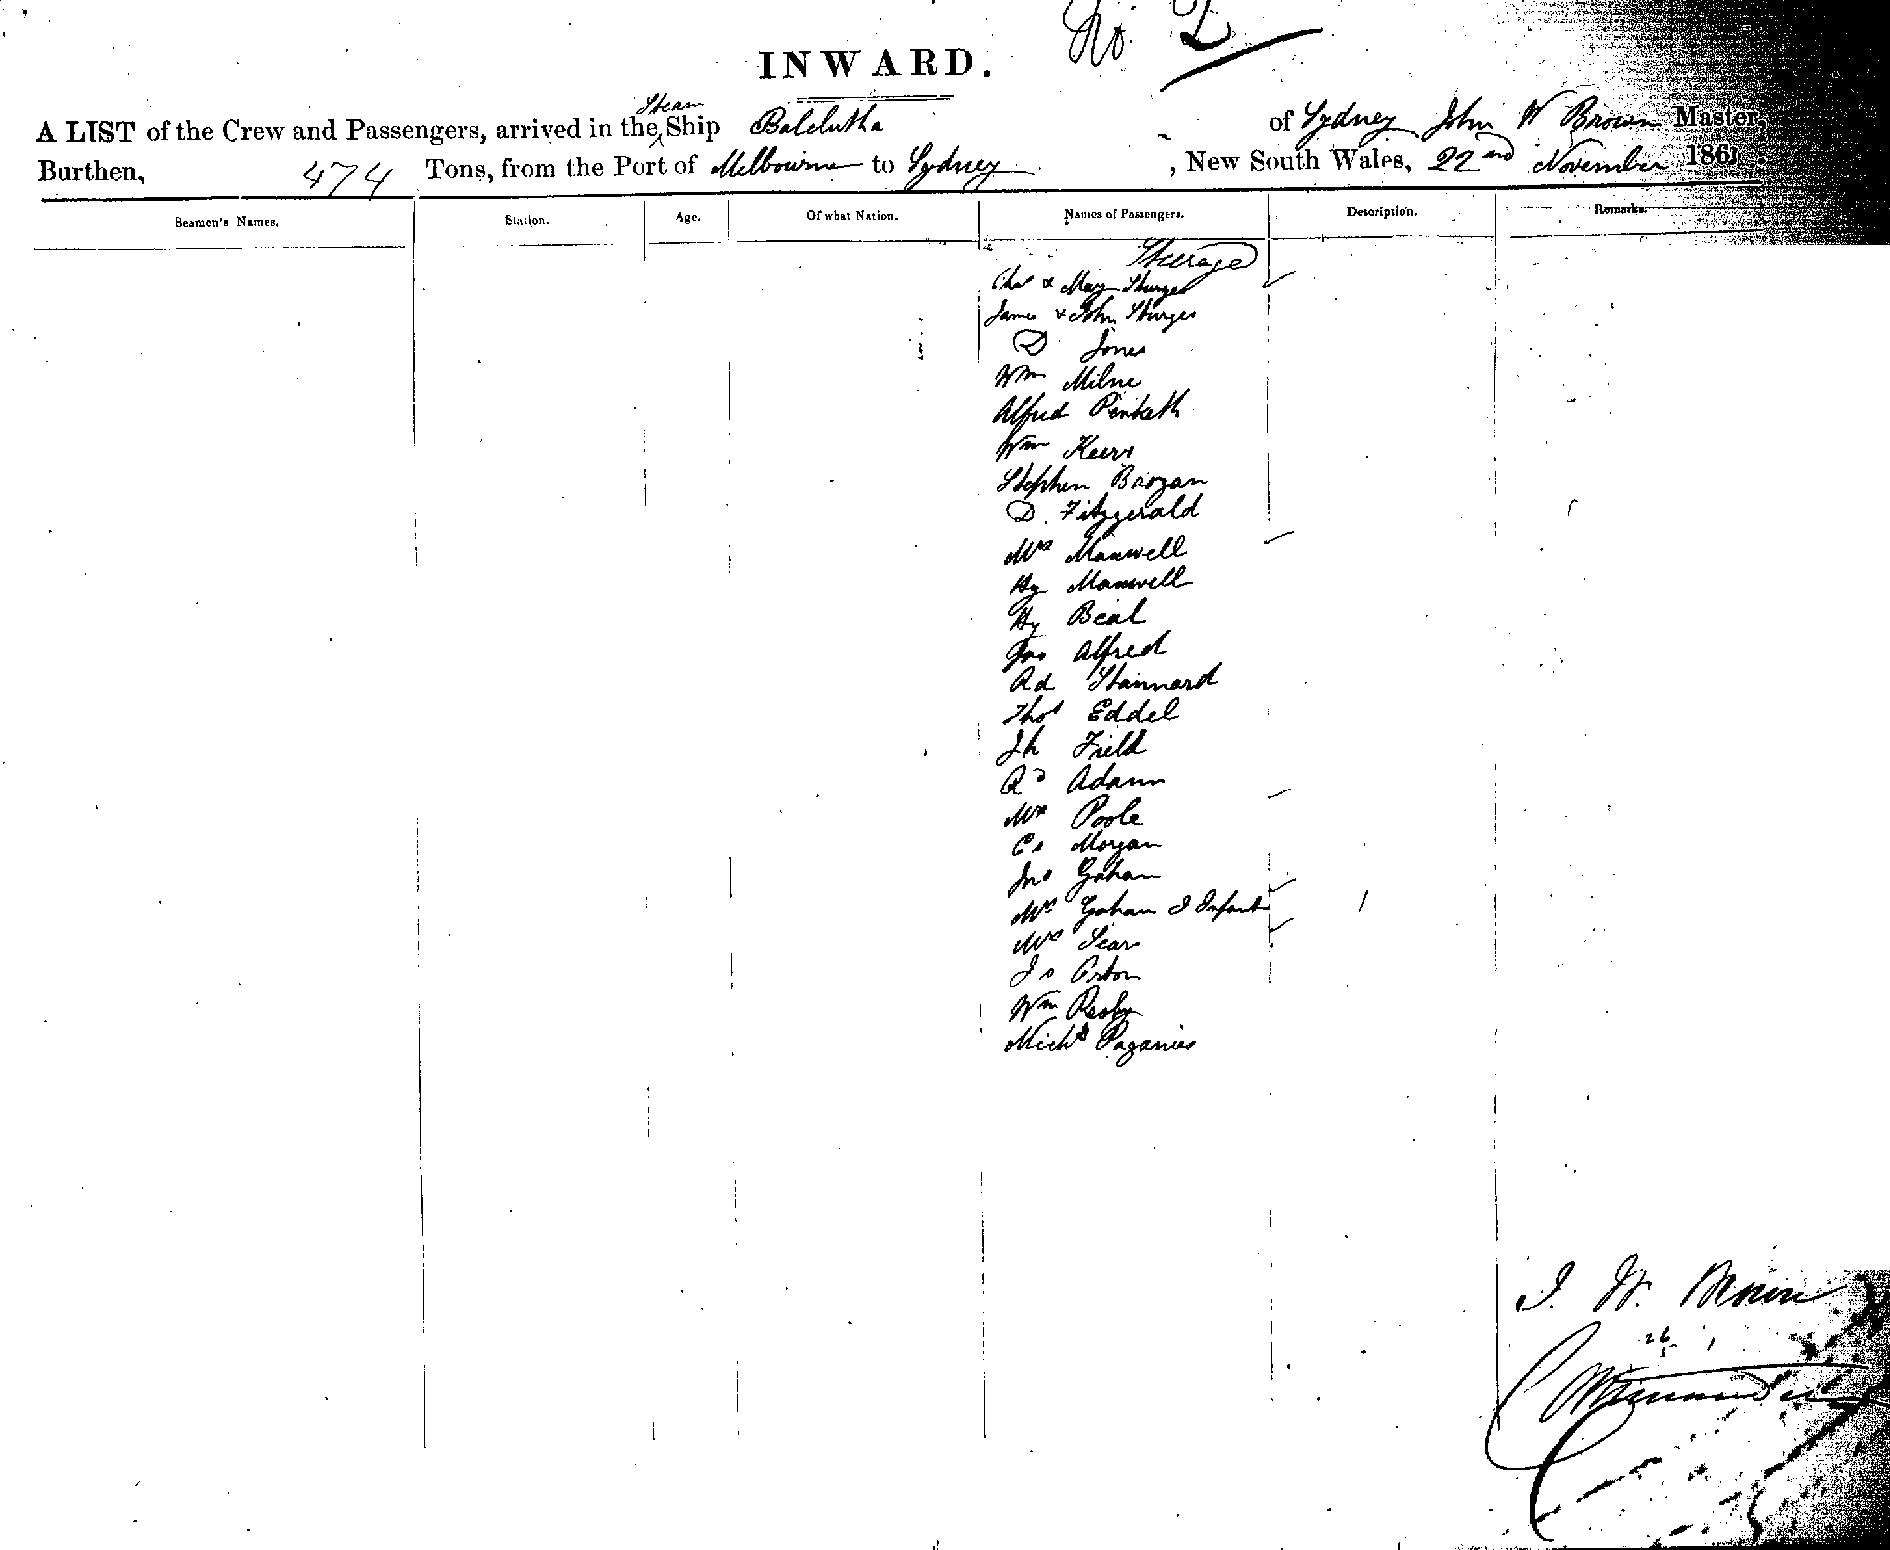 No. 2
INWARD.
Steam
A LIST of the Crew and Passengers, arrived in the Ship Balclutha of Sydney John W Brown Master,
Burthen, 474 Tons, from the Port of Melbourne to Sydney, New South Wales, 22nd November 1861
Seamen's Names. Station. Age. Of what Nation. Names of Passengers. Description. Remarks.
Steerage
Chas & May Sturges
James & John Sturges
D Jones
Wm Milne
Alfred Penketh
Wm Keers
Stephen Brogan
D. Fitzgerald
Mrs Manwell
Hy Manwell
Hy Beal
Jno Alfred
Rd Stannard
Thos Eddel
Jh Field
Rd Adams
Mrs Poole
Cs Morgan
Jno Graham
Mrs Graham & Infant 1
Mrs Sear
Js Orton
Wm
Michl
J. W. Brown
26 1
Commander